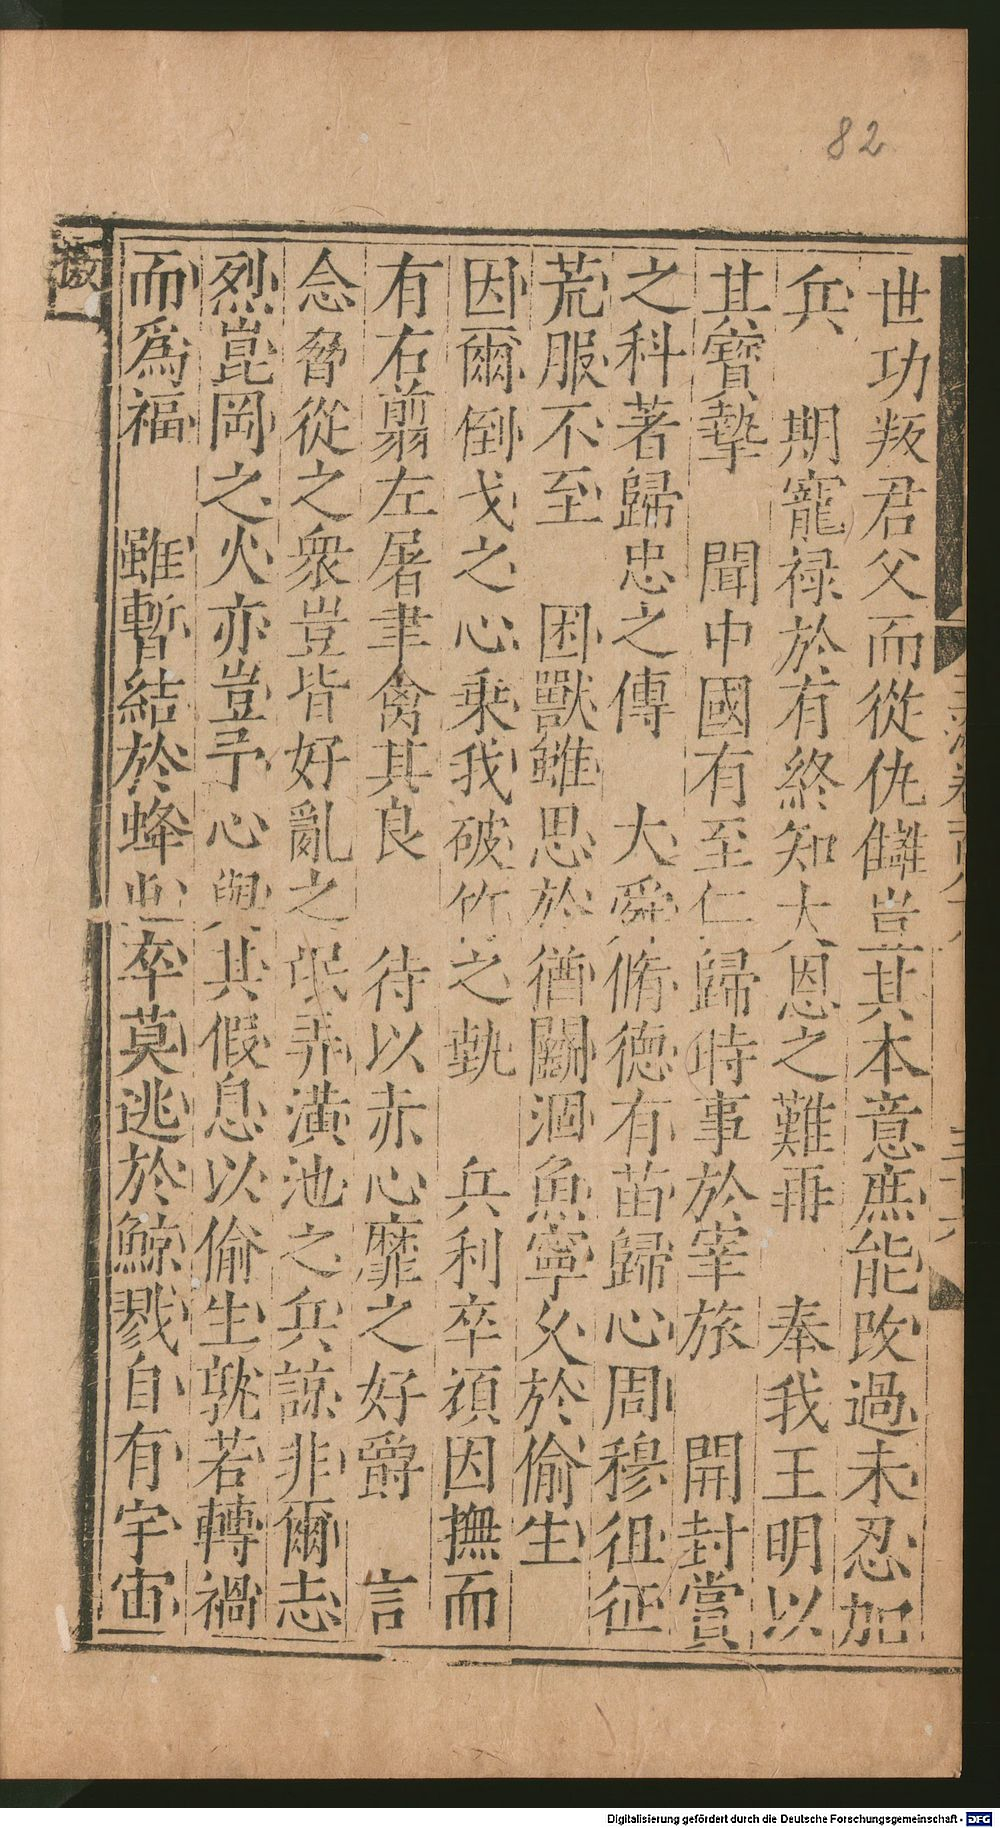 82
世功叛君父而從仇讎豈其本意庶能改過未忍加
兵　期寵禄於有終知大恩之難再　奉我王明以
其寳摯　聞中國有至仁歸時事於宰旅　開封賞
之科著歸忠之傳　大舜脩德有苗歸心周穆徂征
荒服不至　困獸雖思於猶鬭涸魚寧久於偷生
因爾倒戈之心乗我破竹之埶　兵利卒湏因撫而
有右翦左屠聿禽其良　待以赤心靡之好爵　言
念脅從之衆豈皆好亂之氓弄潢池之兵諒非爾志
烈崑岡之火亦豈予心與其假息以偷生孰若轉禍
而爲福　雖暫結於蜂卒莫逃於鯨戮自有宇宙
檄
Digitalisierung gefördert durch die Deutsche Forschungsgemeinschaft - DFG